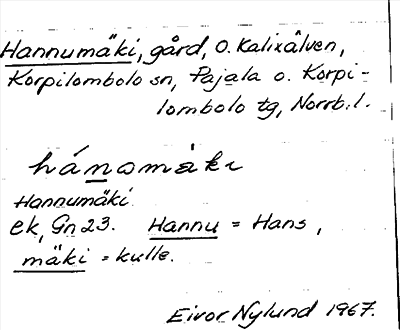 Hannumäki, gård, O. Kalixälven,
Korpilombolo sn, Pajala o. Korpi-
lombolo tg, Norrb. l.
hánomäki
Hannumäki
ek, Gn 23. Hannu = Hans,
mäki = kulle.
Eivor Nylund 1967.